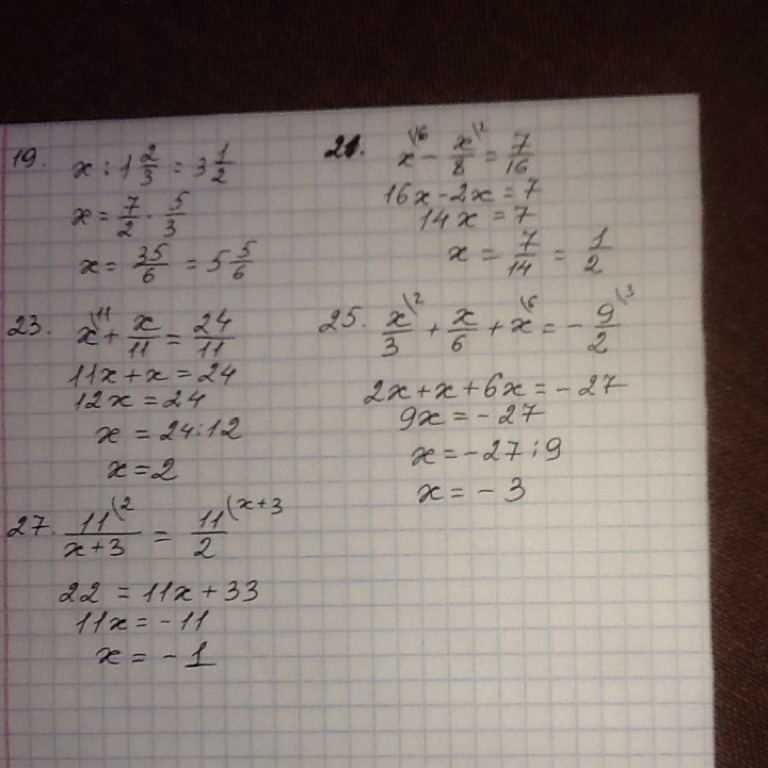 19. x : 1 2/3 = 3 1/2
x = 7/2 · 5/3
x = 35/6 = 5 5/6
21. x\16 - x/8\2 = 7/16
16x - 2x = 7
14x = 7
x = 7/14 = 1/2
23. x\11 + x/11 = 24/11
11x + x = 24
12x = 24
x = 24:12
x = 2
25. x/3\2 + x/6 + x\6 = - 9/2\3
2x + x + 6x = -27
9x = -27
x = -27:9
x = -3
27. 11\2/(x+3) = 11\x+3/2
22 = 11x + 33
11x = -11
x = -1